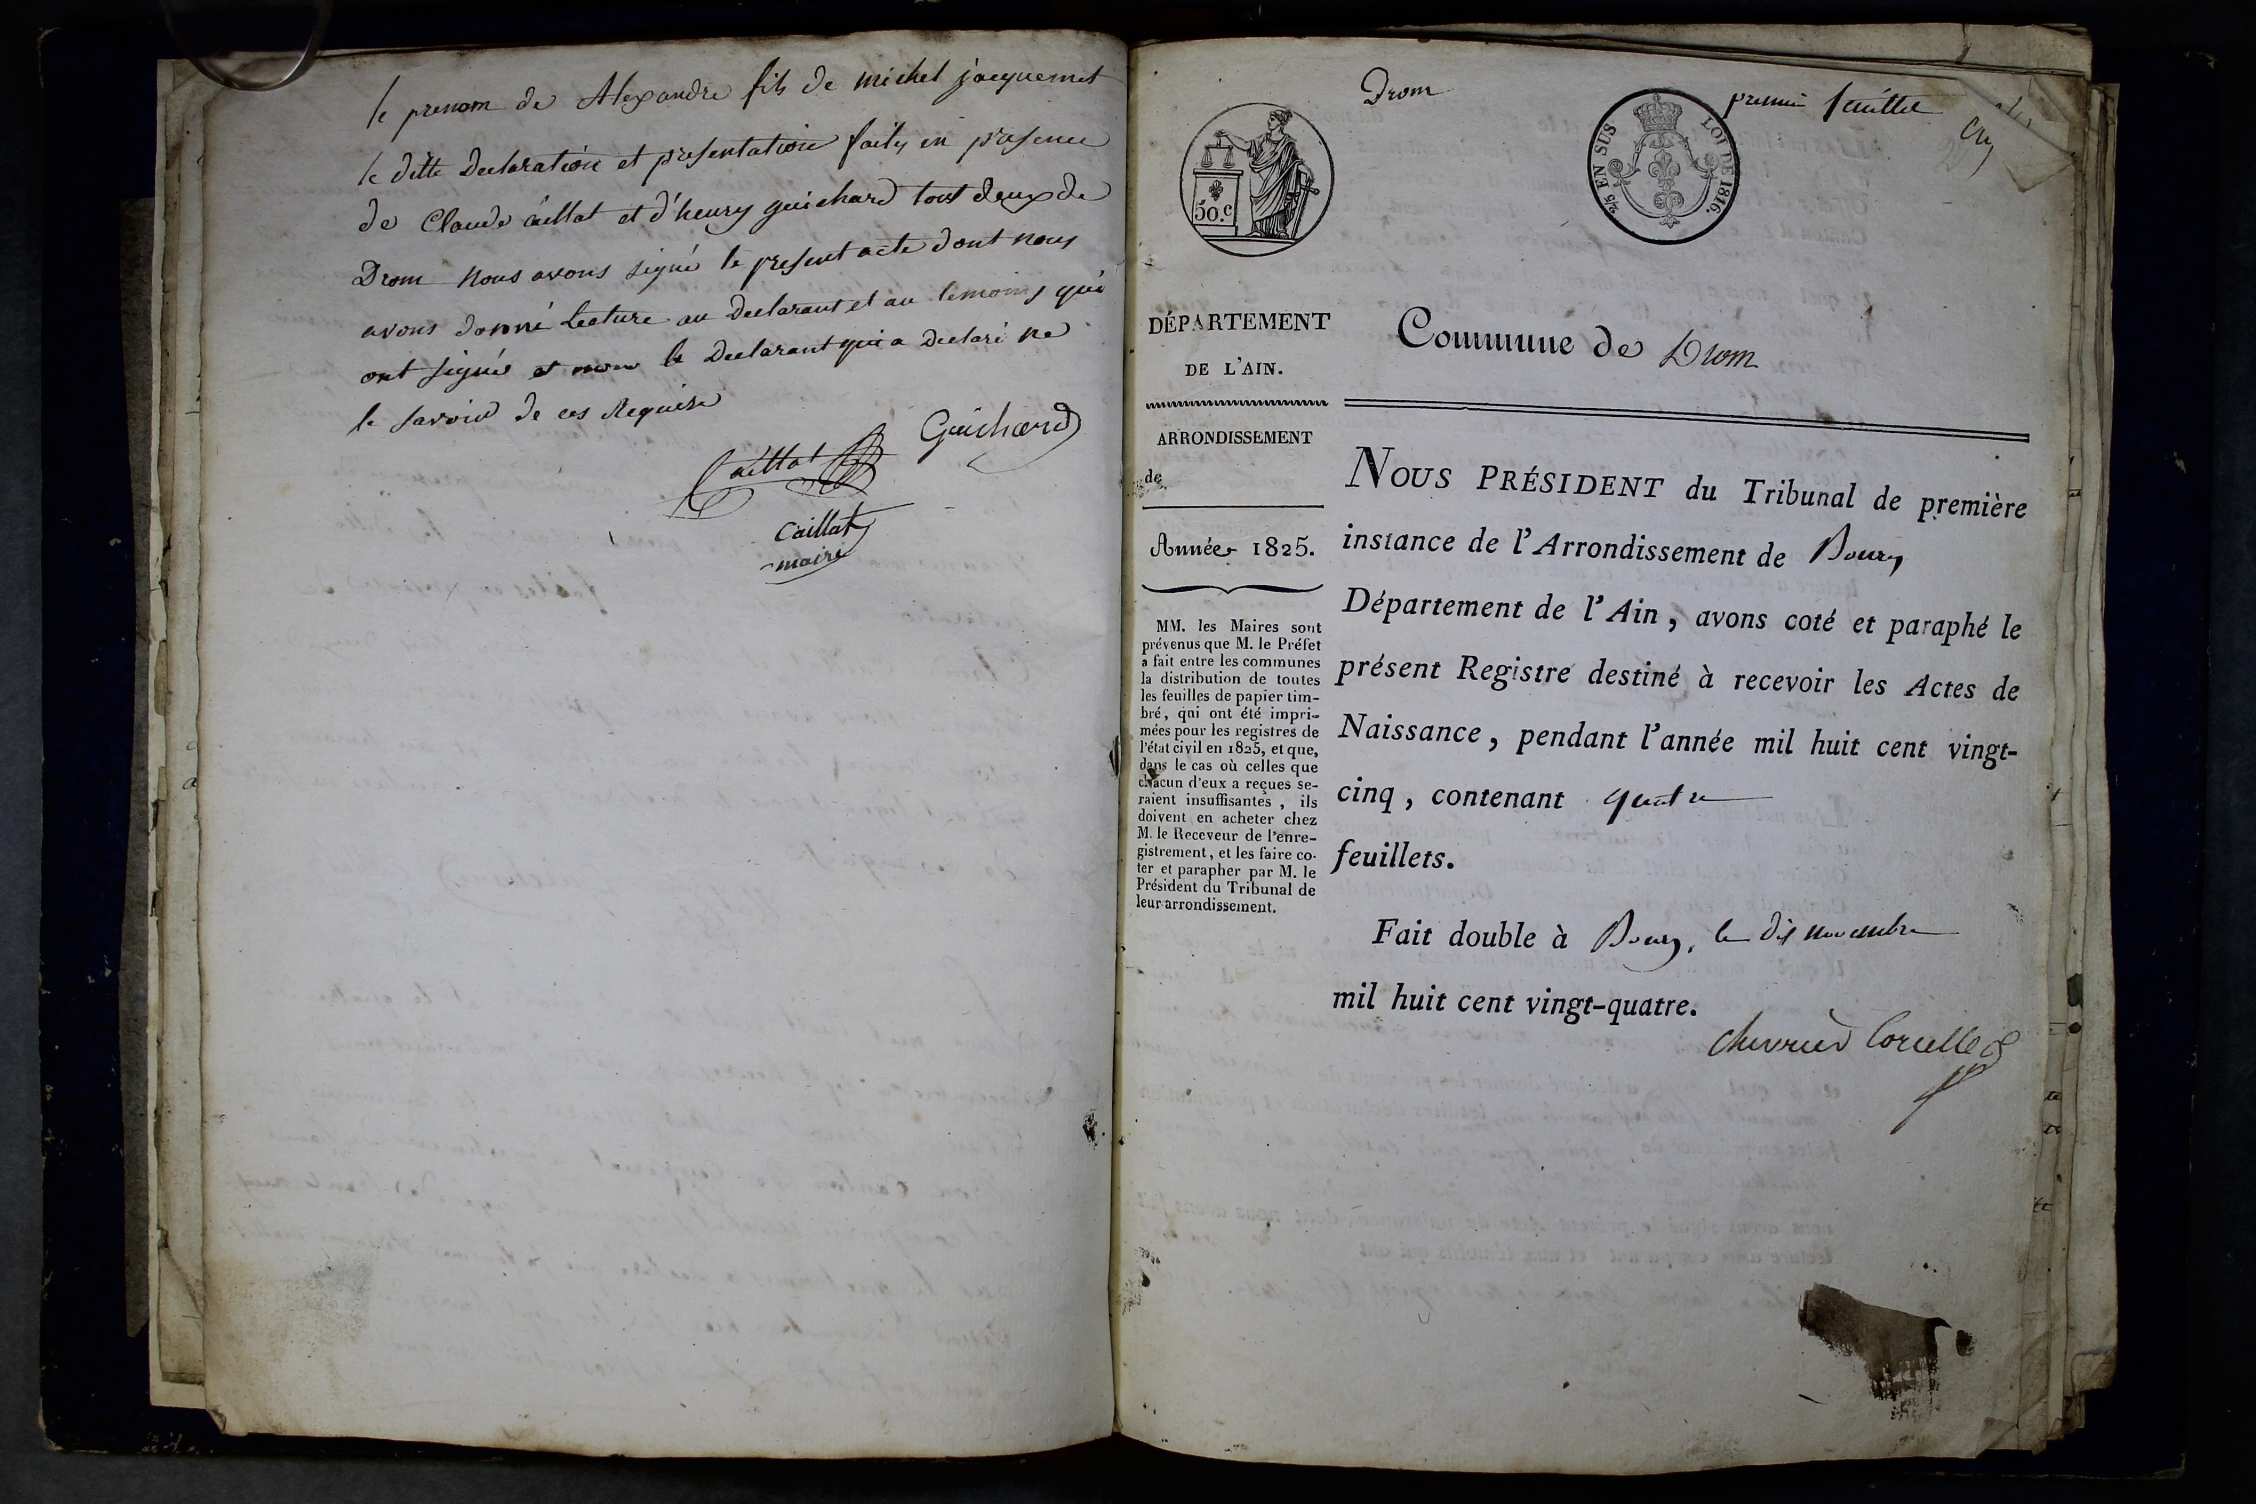 le prenom de Alexandre fils de michel jacquemet
le ditte Declaration et presentation faity en presence
de Claude Caillat et d'henry guichard tout deux de
Drom Nous avons signé le present acte dont nous
avons donné Lecture au Declarant et au temoins qui
ont signé et non le Declarant qui a Declaré ne
le savoir de ces Requise
Caillat Guichard
Caillat
maire
Drom
premier feuillet
50.c
2/5 EN SUS LOI DE 1816.
DÉPARTEMENT
DE L'AIN.
ARRONDISSEMENT
de
Année 1825.
MM. les Maires sont
prévenus que M. le Préfet
a fait entre les communes
la distribution de toutes
les feuilles de papier tim-
bré, qui ont été impri-
mées pour les registres de
l'état civil en 1825, et que,
dans le cas où celles que
chacun d'eux a reçues se-
raient insuffisantes, ils
doivent en acheter chez
M. le Receveur de l'enre-
gistrement, et les faire co-
ter et parapher par M. le
Président du Tribunal de
leur arrondissement.
Commune de Drom
NOUS PRÉSIDENT du Tribunal de première
instance de l'Arrondissement de Bourg
Département de l'Ain, avons coté et paraphé le
présent Registre destiné à recevoir les Actes de
Naissance, pendant l'année mil huit cent vingt-
cinq, contenant quatre
feuillets.
Fait double à Bourg, le dix novembre
mil huit cent vingt-quatre.
chevrier Corcelles